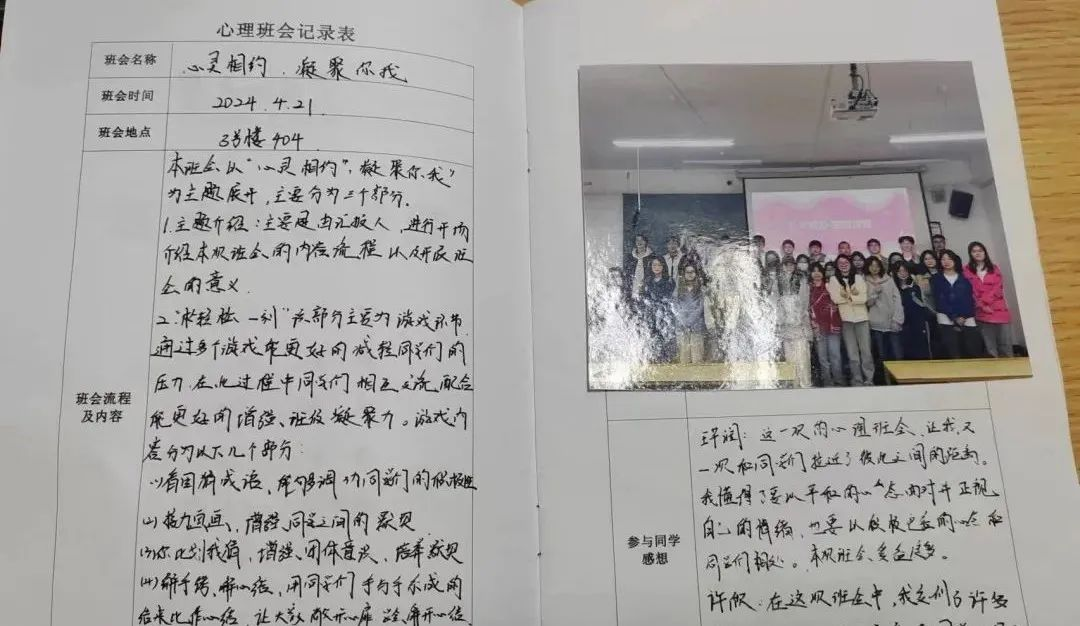 心理班会记录表
班会名称
心灵相约 凝聚你我
班会时间
2024.4.21
班会地点
3号楼404
班会流程
及内容
本班会以"心灵相约",凝聚你我"
为主题展开,主要分为三个部分.
1.主题介绍:主要是由汇报人 进行开场
介绍本次班会的内容流程以及开展班
会的意义.
2."轻松一刻"该部分主要为游戏环节
通过多个游戏来更好的减轻同学们的
压力.在此过程中同学们相互交流配合
能更好的增强班级凝聚力。游戏内
容分为以下几个部分:
(1)看图猜成语,能够调动同学们的积极性
(2)接力画画,增强同学之间的默契
(3)你比划我猜,增强团体意识,培养默契
(4)解手绳、解心结,用同学们手与手形成的
结来比作心结,让大家敞开心扉
参与同学
感想
这一次的心理班会,让我又
一次和同学们拉近了彼此之间的距离。
我懂得了要以平和的心态面对并正视
自己的情绪,也要以积极的心态和
同学们相处。本次班会受益良多。
在这次班会中,我受到了许多